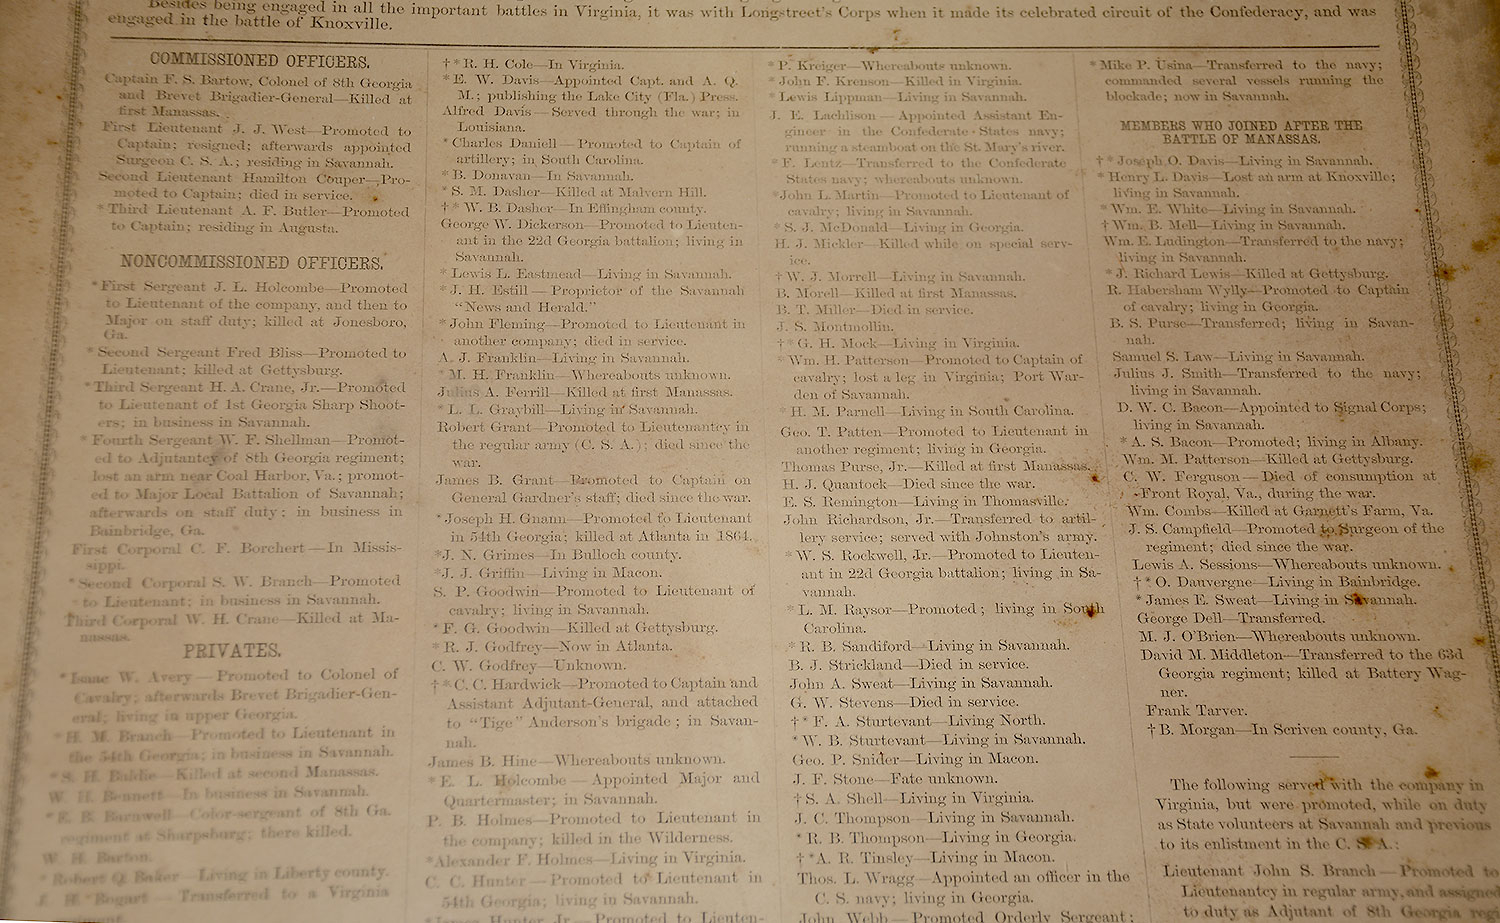 Besides being engaged in all the important battles in Virginia, it was with Longstreet's Corps when it made its celebrated circuit of the Confederacy, and was
engaged in the battle of Knoxville.
COMMISSIONED OFFICERS.
Captain F. S. Bartow, Colonel of 8th Georgia
and Brevet Brigadier-General—Killed at
first Manassas.
First Lieutenant J. J. West—Promoted to
Captain; resigned; afterwards appointed
Surgeon C. S. A.; residing in Savannah.
Second Lieutenant Hamilton Couper—Pro-
moted to Captain; died in service.
*Third Lieutenant A. F. Butler—Promoted
to Captain; residing in Augusta.
NONCOMMISSIONED OFFICERS.
*First Sergeant J. L. Holcombe—Promoted
to Lieutenant of the company, and then to
Major on staff duty; killed at Jonesboro,
Ga.
*Second Sergeant Fred Bliss—Promoted to
Lieutenant; killed at Gettysburg.
*Third Sergeant H. A. Crane, Jr.—Promoted
to Lieutenant of 1st Georgia Sharp Shoot-
ers; in business in Savannah.
*Fourth Sergeant W. F. Shellman—Promot-
ed to Adjutantcy of 8th Georgia regiment;
lost an arm near Coal Harbor, Va.; promot-
ed to Major Local Battalion of Savannah;
afterwards on staff duty; in business in
Bainbridge, Ga.
First Corporal C. F. Borchert—In Missis-
sippi.
*Second Corporal S. W. Branch—Promoted
to Lieutenant; in business in Savannah.
Third Corporal W. H. Crane—Killed at Ma-
nassas.
PRIVATES.
*Isaac W. Avery—Promoted to Colonel of
Cavalry; afterwards Brevet Brigadier-Gen-
eral; living in upper Georgia.
*H. M. Branch—Promoted to Lieutenant in
the 54th Georgia; in business in Savannah.
*S. H. Baldie—Killed at second Manassas.
W. H. Bennett—In business in Savannah.
*E. B. Barnwell—Color-sergeant of 8th Ga.
regiment at Sharpsburg; there killed.
W. H. Barton.
*Robert Q. Baker—Living in Liberty county.
J. H. Bogart—Transferred to a Virginia
†*R. H. Cole—In Virginia.
*E. W. Davis—Appointed Capt. and A. Q.
M.; publishing the Lake City (Fla.) Press.
Alfred Davis—Served through the war; in
Louisiana.
*Charles Daniell—Promoted to Captain of
artillery; in South Carolina.
*B. Donavan—In Savannah.
*S. M. Dasher—Killed at Malvern Hill.
†*W. B. Dasher—In Effingham county.
George W. Dickerson—Promoted to Lieuten-
ant in the 22d Georgia battalion; living in
Savannah.
*Lewis L. Eastmead—Living in Savannah.
*J. H. Estill—Proprietor of the Savannah
"News and Herald."
*John Fleming—Promoted to Lieutenant in
another company; died in service.
A. J. Franklin—Living in Savannah.
*M. H. Franklin—Whereabouts unknown.
Julius A. Ferrill—Killed at first Manassas.
*L. L. Graybill—Living in Savannah.
Robert Grant—Promoted to Lieutenantcy in
the regular army (C. S. A.); died since the
war.
James B. Grant—Promoted to Captain on
General Gardner's staff; died since the war.
*Joseph H. Gnann—Promoted to Lieutenant
in 54th Georgia; killed at Atlanta in 1864.
*J. N. Grimes—In Bulloch county.
*J. J. Griffin—Living in Macon.
S. P. Goodwin—Promoted to Lieutenant of
cavalry; living in Savannah.
*F. G. Goodwin—Killed at Gettysburg.
*R. J. Godfrey—Now in Atlanta.
C. W. Godfrey—Unknown.
†*C. C. Hardwick—Promoted to Captain and
Assistant Adjutant-General, and attached
to "Tige" Anderson's brigade; in Savan-
nah.
James B. Hine—Whereabouts unknown.
*E. L. Holcombe—Appointed Major and
Quartermaster; in Savannah.
P. B. Holmes—Promoted to Lieutenant in
the company; killed in the Wilderness.
*Alexander F. Holmes—Living in Virginia.
C. C. Hunter—Promoted to Lieutenant in
54th Georgia; living in Savannah.
*James Hunter, Jr.—Promoted to Lieuten-
*P. Kreiger—Whereabouts unknown.
*John F. Krenson—Killed in Virginia.
*Lewis Lippman—Living in Savannah.
J. E. Lachlison—Appointed Assistant En-
gineer in the Confederate States navy;
running a steamboat on the St. Mary's river.
*F. Lentz—Transferred to the Confederate
States navy; whereabouts unknown.
*John L. Martin—Promoted to Lieutenant of
cavalry; living in Savannah.
*S. J. McDonald—Living in Georgia.
H. J. Mickler—Killed while on special serv-
ice.
†W. J. Morrell—Living in Savannah.
B. Morell—Killed at first Manassas.
B. T. Miller—Died in service.
J. S. Montmollin.
†*G. H. Mock—Living in Virginia.
*Wm. H. Patterson—Promoted to Captain of
cavalry; lost a leg in Virginia; Port War-
den of Savannah.
*H. M. Parnell—Living in South Carolina.
Geo. T. Patten—Promoted to Lieutenant in
another regiment; living in Georgia.
Thomas Purse, Jr.—Killed at first Manassas.
H. J. Quantock—Died since the war.
E. S. Remington—Living in Thomasville.
John Richardson, Jr.—Transferred to artil-
lery service; served with Johnston's army.
*W. S. Rockwell, Jr.—Promoted to Lieuten-
ant in 22d Georgia battalion; living in Sa-
vannah.
*L. M. Raysor—Promoted; living in South
Carolina.
*R. B. Sandiford—Living in Savannah.
B. J. Strickland—Died in service.
John A. Sweat—Living in Savannah.
G. W. Stevens—Died in service.
†*F. A. Sturtevant—Living North.
*W. B. Sturtevant—Living in Savannah.
Geo. P. Snider—Living in Macon.
J. F. Stone—Fate unknown.
†S. A. Shell—Living in Virginia.
J. C. Thompson—Living in Savannah.
*R. B. Thompson—Living in Georgia.
†*A. R. Tinsley—Living in Macon.
Thos. L. Wragg—Appointed an officer in the
C. S. navy; living in Georgia.
John Webb—Promoted Orderly Sergeant;
*Mike P. Usina—Transferred to the navy;
commanded several vessels running the
blockade; now in Savannah.
MEMBERS WHO JOINED AFTER THE
BATTLE OF MANASSAS.
†*Joseph O. Davis—Living in Savannah.
*Henry L. Davis—Lost an arm at Knoxville;
living in Savannah.
*Wm. E. White—Living in Savannah.
†Wm. B. Mell—Living in Savannah.
Wm. E. Ludington—Transferred to the navy;
living in Savannah.
*J. Richard Lewis—Killed at Gettysburg.
R. Habersham Wylly—Promoted to Captain
of cavalry; living in Georgia.
B. S. Purse—Transferred; living in Savan-
nah.
Samuel S. Law—Living in Savannah.
Julius J. Smith—Transferred to the navy;
living in Savannah.
D. W. C. Bacon—Appointed to Signal Corps;
living in Savannah.
*A. S. Bacon—Promoted; living in Albany.
Wm. M. Patterson—Killed at Gettysburg.
C. W. Ferguson—Died of consumption at
Front Royal, Va., during the war.
Wm. Combs—Killed at Garnett's Farm, Va.
J. S. Campfield—Promoted to Surgeon of the
regiment; died since the war.
Lewis A. Sessions—Whereabouts unknown.
†*O. Dauvergne—Living in Bainbridge.
*James E. Sweat—Living in Savannah.
George Dell—Transferred.
M. J. O'Brien—Whereabouts unknown.
David M. Middleton—Transferred to the 63d
Georgia regiment; killed at Battery Wag-
ner.
Frank Tarver.
†B. Morgan—In Scriven county, Ga.
The following served with the company in
Virginia, but were promoted, while on duty
as State volunteers at Savannah and previous
to its enlistment in the C. S. A.:
Lieutenant John S. Branch—Promoted to
Lieutenantcy in regular army, and assigned
to duty as Adjutant of 8th Georgia regi